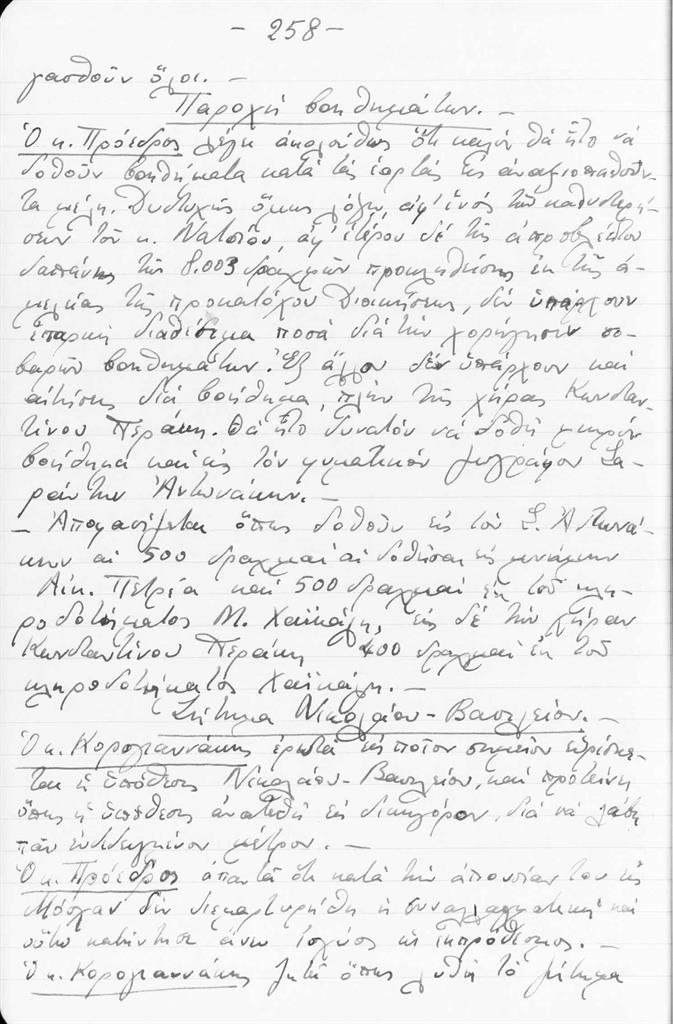 - 258 -
γασθοῦν ὅλοι. -
Παροχὴ βοηθημάτων. -
Ὁ κ. Πρόεδρος λέγει ἀκολούθως ὅτι καλὸν θὰ ἦτο νὰ
δοθοῦν βοηθήματα κατὰ τὰς ἑορτὰς εἰς ἀναξιοπαθοῦν-
τα μέλη. Δυστυχῶς ὅμως λόγῳ, ἀφ' ἑνὸς τῶν καθυστερή-
σεων τοῦ κ. Νάτσιου, ἀφ' ἑτέρου δὲ τῆς ἀπροβλέπτου
δαπάνης τῶν 8.003 δραχμῶν προκληθείσης ἐκ τῆς ἀ-
μελείας τῆς προκατόχου Διοικήσεως, δὲν ὑπάρχουν
ἐπαρκῆ διαθέσιμα ποσὰ διὰ τὴν χορήγησιν σο-
βαρῶν βοηθημάτων. Ἐξ ἄλλου δὲν ὑπάρχουν καὶ
αἰτήσεις διὰ βοήθημα, πλὴν τῆς χήρας Κωνσταν-
τίνου Περάκη. Θὰ ἦτο δυνατὸν νὰ δοθῇ μικρὸν
βοήθημα καὶ εἰς τὸν φυματικὸν ζωγράφον Σα-
ράντην Ἀντωνάκην. -
- Ἀποφασίζεται ὅπως δοθοῦν εἰς τὸν Σ. Ἀντωνά-
κην αἱ 500 δραχμαὶ αἱ δοθεῖσαι εἰς μνήμην
Αἰκ. Πετρέα καὶ 500 δραχμαὶ ἐκ τοῦ κλη-
ροδοτήματος Μ. Χαϊκάλη, εἰς δὲ τὴν χήραν
Κωνσταντίνου Περάκη 400 δραχμαὶ ἐκ τοῦ
κληροδοτήματος Χαϊκάλη. -
Ζήτημα Νικολάου - Βασιλείου. -
Ὁ κ. Κορογιαννάκης ἐρωτᾶ εἰς ποῖον σημεῖον εὑρίσκε-
ται ἡ ὑπόθεσις Νικολάου - Βασιλείου, καὶ προτείνει
ὅπως ἡ ὑπόθεσις ἀνατεθῇ εἰς δικηγόρον, διὰ νὰ λάβῃ
πᾶν ἐνδεδειγμένον μέτρον. -
Ὁ κ. Πρόεδρος ἀπαντᾶ ὅτι κατὰ τὴν ἀπουσίαν του εἰς
Μόσχαν δὲν διεμαρτυρήθη ἡ συναλλαγματικὴ καὶ
οὕτω κατήντησε ἄνευ ἰσχύος ὡς ἐκπρόθεσμος. -
Ὁ κ. Κορογιαννάκης ζητεῖ ὅπως λυθῇ τὸ ζήτημα